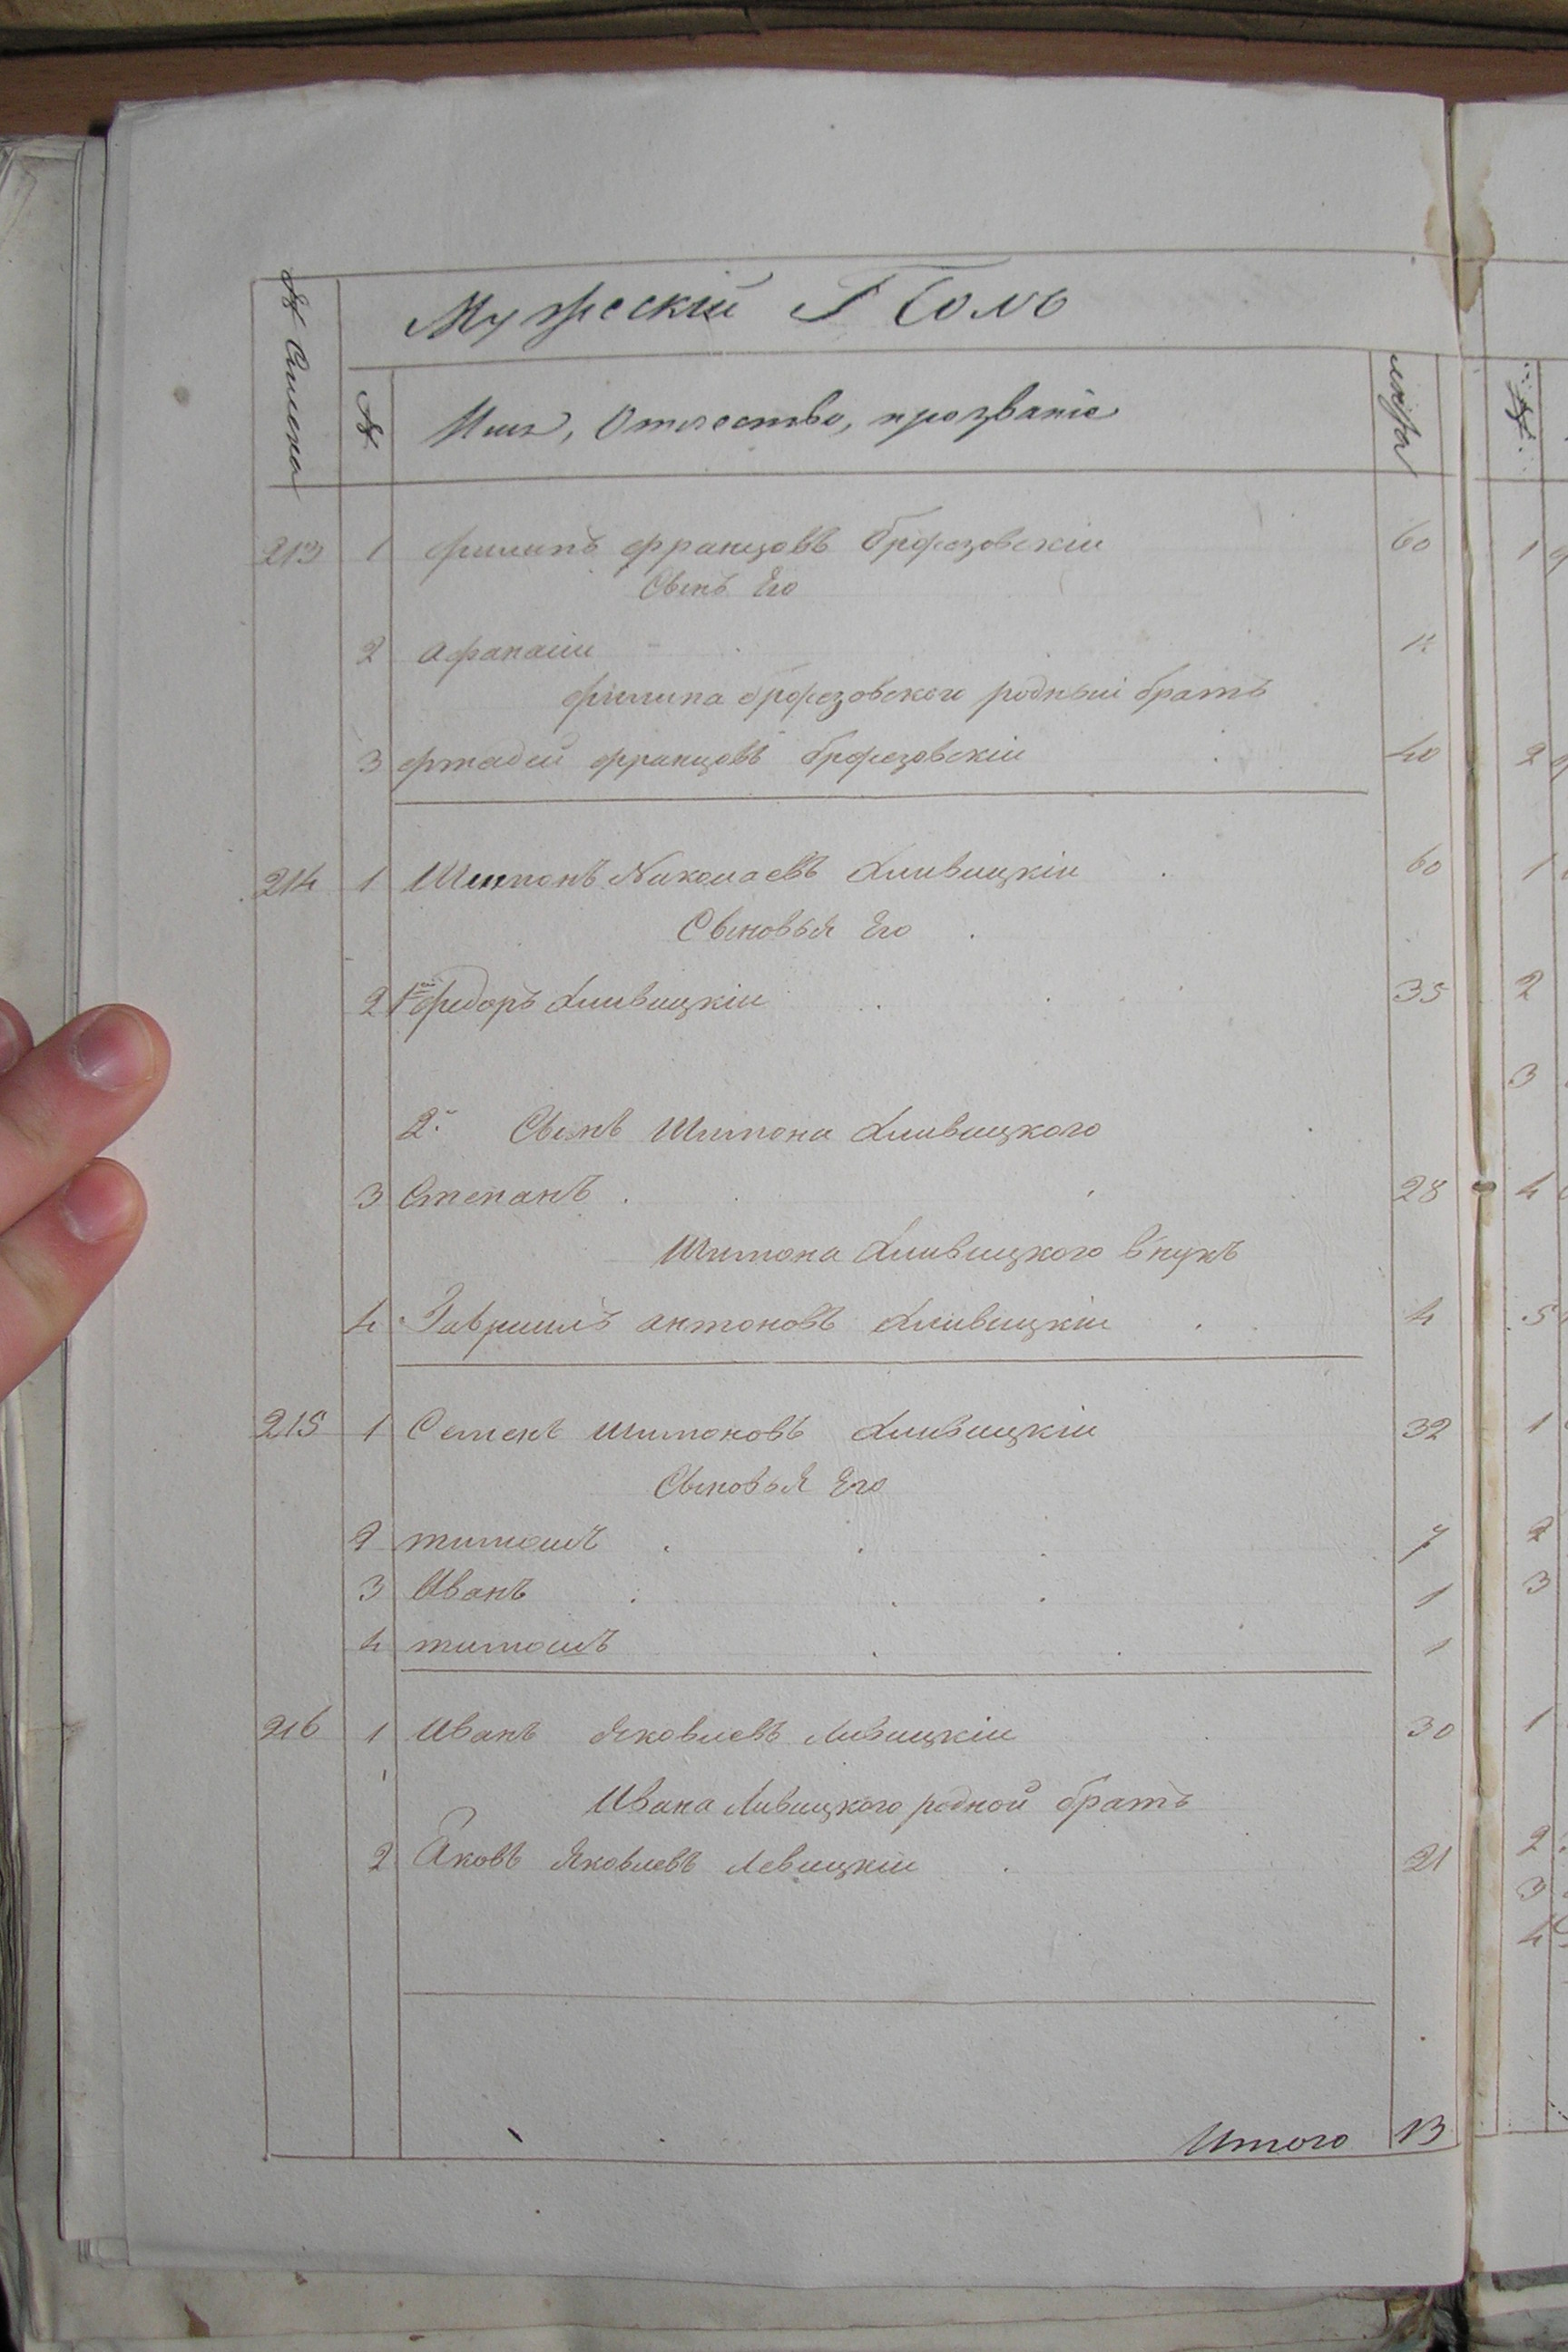 Мужескій Полъ
№ Списка
№ Имя, Отчество, прозваніе лѣта
213 1 филипъ францовъ брофезовскіи 60
Сынъ Его
2 афанасіи
филипа брофезовского родный братъ
3 фтадеи францовъ брофезовскіи 40
214 1 Шимонъ Николаевъ Хливицкіи 60
Сыновья Его
2 1й федоръ Хливицкіи 35
2й Сынъ Шимона Хливицкого
3 Степанъ 28
Шимона Хливицкого внукъ
4 Гавриилъ антоновъ Хливицкіи 4
215 1 Семенъ шимоновъ Хливицкіи 32
Сыновья Его
2 тимошъ 7
3 Иванъ 1
4 тимошъ 1
216 1 Иванъ Яковлевъ Ливицкіи 30
Ивана Ливицкого родной братъ
2 Яковъ Яковлевъ Левицкіи 21
Итого 13
1
2
1
2
3
4
5
1
2
3
1
2
3
4